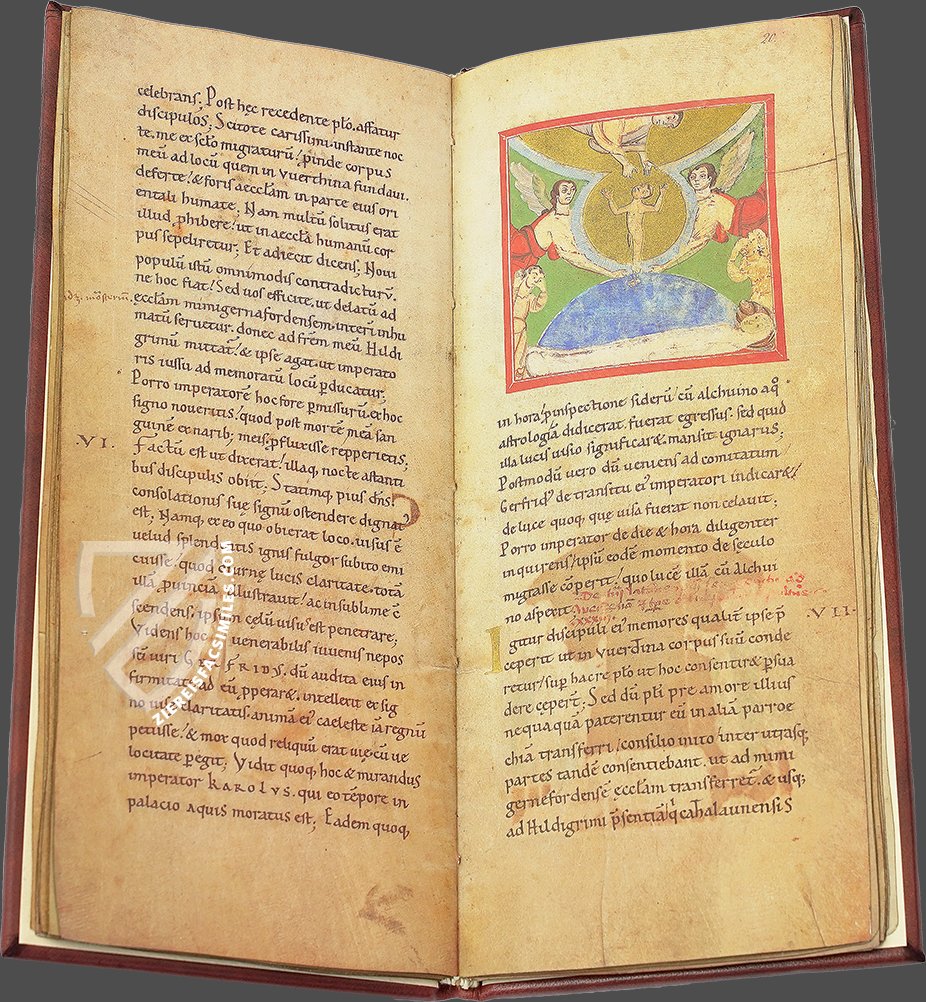 celebrans; Post hęc recedente pło. affatur
discipulos; Scitote carissimi. instante noc
te. me ex scło migraturū! proinde corpus
meū ad locū quem in vuerthina fundavi.
deferte! & foris aecclam in parte eius ori
entali humate. Nam multū solitus erat
illud phibere! ut in aeccla humanū cor
pus sepeliretur; Et adiecit dicens; Novi
populū istū omnimodis contradicturū.
ne hoc fiat! Sed vos efficite, ut delatū ad
ecclam mimigernafordensem. interī inhu
matū servetur. donec ad frem meū Hildi
grimū mittat! & ipse agat. ut imperato
ris iussu ad memoratū locū pducatur;
Porro imperatorē hoc fore pmissurū. ex hoc
signo noveritis! quod post mortē meā san
guinē ex narib; meis pfluxisse repperietis;
VI.
Factū est ut dixerat! illaq, nocte astanti
bus discipulis obiit; Statimq, pius dns.
consolationis suę signū ostendere dignat
est; Namq, ex eo quo obierat loco. visus ē
velud splendentis ignis fulgor subito emi
cuisse! quod diurnę lucis claritate totā
illā puinciā illustravit! ac in sublime c̄
scendens, ipsum celū visus est penetrare;
Videns hoc venerabilis iuvenis nepos
sci viri GERFRIDUS. dū audita eius in
firmitate ad eū pperar&. intellexit ex sig
no claritatis. animā ei caeleste iā regnū
petisse! & mox quod reliquū erat vię cū ve
locitate pegit; Vidit quoq, hoc & mirandus
imperator KAROLVS. qui eo tēpore in
palacio aquis moratus est; Eadem quoq,
20
in hora! p inspectione siderū! cū alchuino a q
astrologiā didicerat. fuerat egressus. sed quid
illa lucis visio significar& mansit ignarus;
Postmodū vero dū veniens ad comitatum
Gerfrid de transitu ei imperatori indicar&!
de luce quoq, quę visa fuerat non celavit;
Porro imperator de die & hora diligenter
inquirens! ipsū eodē momento de seculo
migrasse cōperit! quo lucē illā cū Alchui
no aspexit;
VII.
Igitur discipuli ei memores qualit ipse p̄
ceperit ut in vuerdina corpus suū conde
retur! sup hac re pło ut hoc consentir& psua
dere cępert; Sed dū płi pre amore illius
nequaquā paterentur eū in aliā parroe
chiā transferri! consilio inito inter utrasq;
partes tandē consentiebant. ut ad mimi
gernefordensē ęcclam transferret. & usq;
ad Hildigrimi psentiā q catalaunensis
ZIEREISFACSIMILES.COM